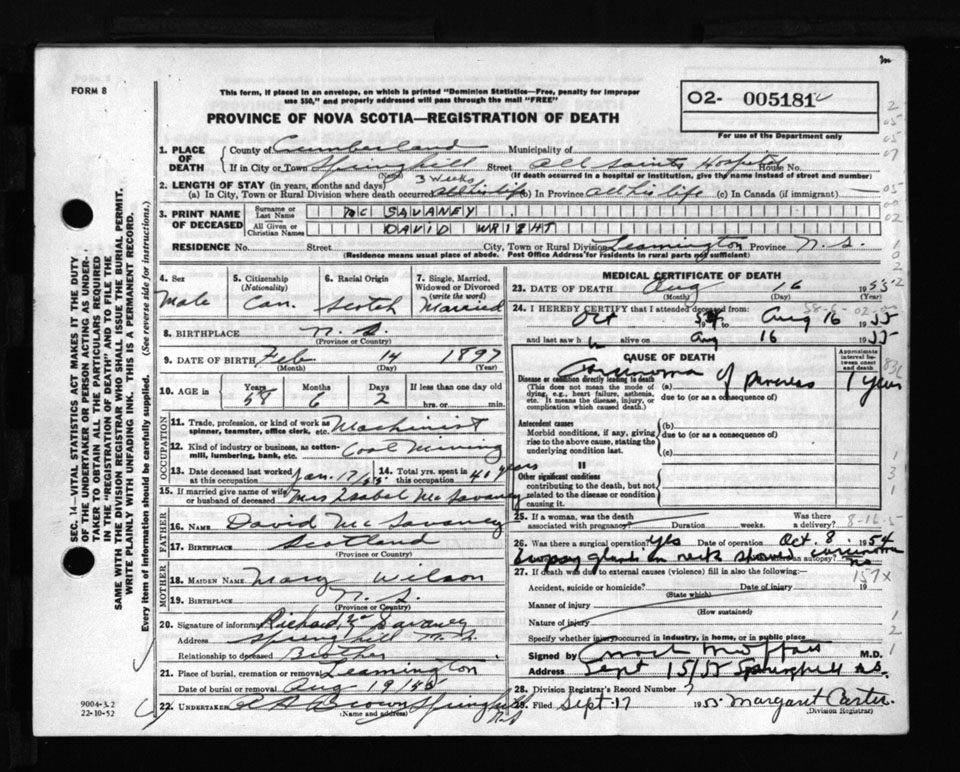 FORM 8
This form, if placed in an envelope, on which is printed "Dominion Statistics—Free, penalty for improper
use $50," and properly addressed will pass through the mail "FREE"
PROVINCE OF NOVA SCOTIA—REGISTRATION OF DEATH
02- 005181
For use of the Department only
SEC. 14—VITAL STATISTICS ACT MAKES IT THE DUTY
OF THE UNDERTAKER OR PERSON ACTING AS UNDER-
TAKER TO OBTAIN ALL THE PARTICULARS REQUIRED
IN THE "REGISTRATION OF DEATH" AND TO FILE THE
SAME WITH THE DIVISION REGISTRAR WHO SHALL ISSUE THE BURIAL PERMIT.
WRITE PLAINLY WITH UNFADING INK. THIS IS A PERMANENT RECORD.
Every item of information should be carefully supplied. (See reverse side for instructions.)
1. PLACE OF DEATH County of Cumberland Municipality of
If in City or Town Springhill Street All Saints Hospital House No.
(Name) (If death occurred in a hospital or institution, give the name instead of street and number)
2. LENGTH OF STAY (in years, months and days) 3 weeks
(a) In City, Town or Rural Division where death occurred all his life (b) In Province all his life (c) In Canada (if immigrant)
3. PRINT NAME OF DECEASED Surname or Last Name Mc SAVANEY
All Given or Christian Names DAVID WRIGHT
RESIDENCE No. Street City, Town or Rural Division Leamington Province N.S.
(Residence means usual place of abode. Post Office Address for residents in rural parts not sufficient)
4. Sex Male
5. Citizenship (Nationality) Can.
6. Racial Origin Scotch
7. Single, Married, Widowed or Divorced (write the word) Married
8. BIRTHPLACE N.S.
(Province or Country)
9. DATE OF BIRTH Feb 14 1897
(Month) (Day) (Year)
10. AGE is Years 58 Months 6 Days 2 If less than one day old hrs. or min.
OCCUPATION
11. Trade, profession, or kind of work as spinner, teamster, office clerk, etc. Machinist
12. Kind of industry or business, as cotton-mill, lumbering, bank, etc. Coal Mining
13. Date deceased last worked at this occupation Jan. 17/55 14. Total yrs. spent in this occupation 41 years
15. If married give name of wife or husband of deceased Mrs Isabel McSavaney
FATHER
16. NAME David McSavaney
17. BIRTHPLACE Scotland
(Province or Country)
MOTHER
18. MAIDEN NAME Mary Wilson
19. BIRTHPLACE N.S.
(Province or Country)
20. Signature of informant Richard Mc Savaney
Address Springhill N.S.
Relationship to deceased Brother
21. Place of burial, cremation or removal Leamington
Date of burial or removal Aug 19/55
22. UNDERTAKER A Brown Springhill N.S
(Name and address)
9004-3.2
22-10-52
MEDICAL CERTIFICATE OF DEATH
23. DATE OF DEATH Aug 16 1955
(Month) (Day) (Year)
24. I HEREBY CERTIFY that I attended deceased from
Oct 1954 to Aug 16 1955
and last saw h alive on Aug 16 1955
CAUSE OF DEATH
Approximate interval between onset and death
Disease or condition directly leading to death (a) Carcinoma of pancreas 1 year
(This does not mean the mode of dying, e.g., heart failure, asthenia, etc. It means the disease, injury, or complication which caused death.)
due to (or as a consequence of)
Antecedent causes
Morbid conditions, if any, giving rise to the above cause, stating the underlying condition last.
(b)
due to (or as a consequence of)
(c)
II
Other significant conditions
contributing to the death, but not related to the disease or condition causing it.
25. If a woman, was the death associated with pregnancy? Duration weeks. Was there a delivery?
26. Was there a surgical operation? Yes Date of operation Oct. 8 1954
Biopsy gland in neck showed carcinoma autopsy? no
27. If death was due to external causes (violence) fill in also the following:
Accident, suicide or homicide? Date of injury 19
(State which)
Manner of injury
(How sustained)
Nature of injury
Specify whether injury occurred in industry, in home, or in public place
Signed by M.D.
Address Sept 15/55 Springhill N.S.
28. Division Registrar's Record Number 7
29. Filed Sept. 17 1955 Margaret Carter
(Division Registrar)